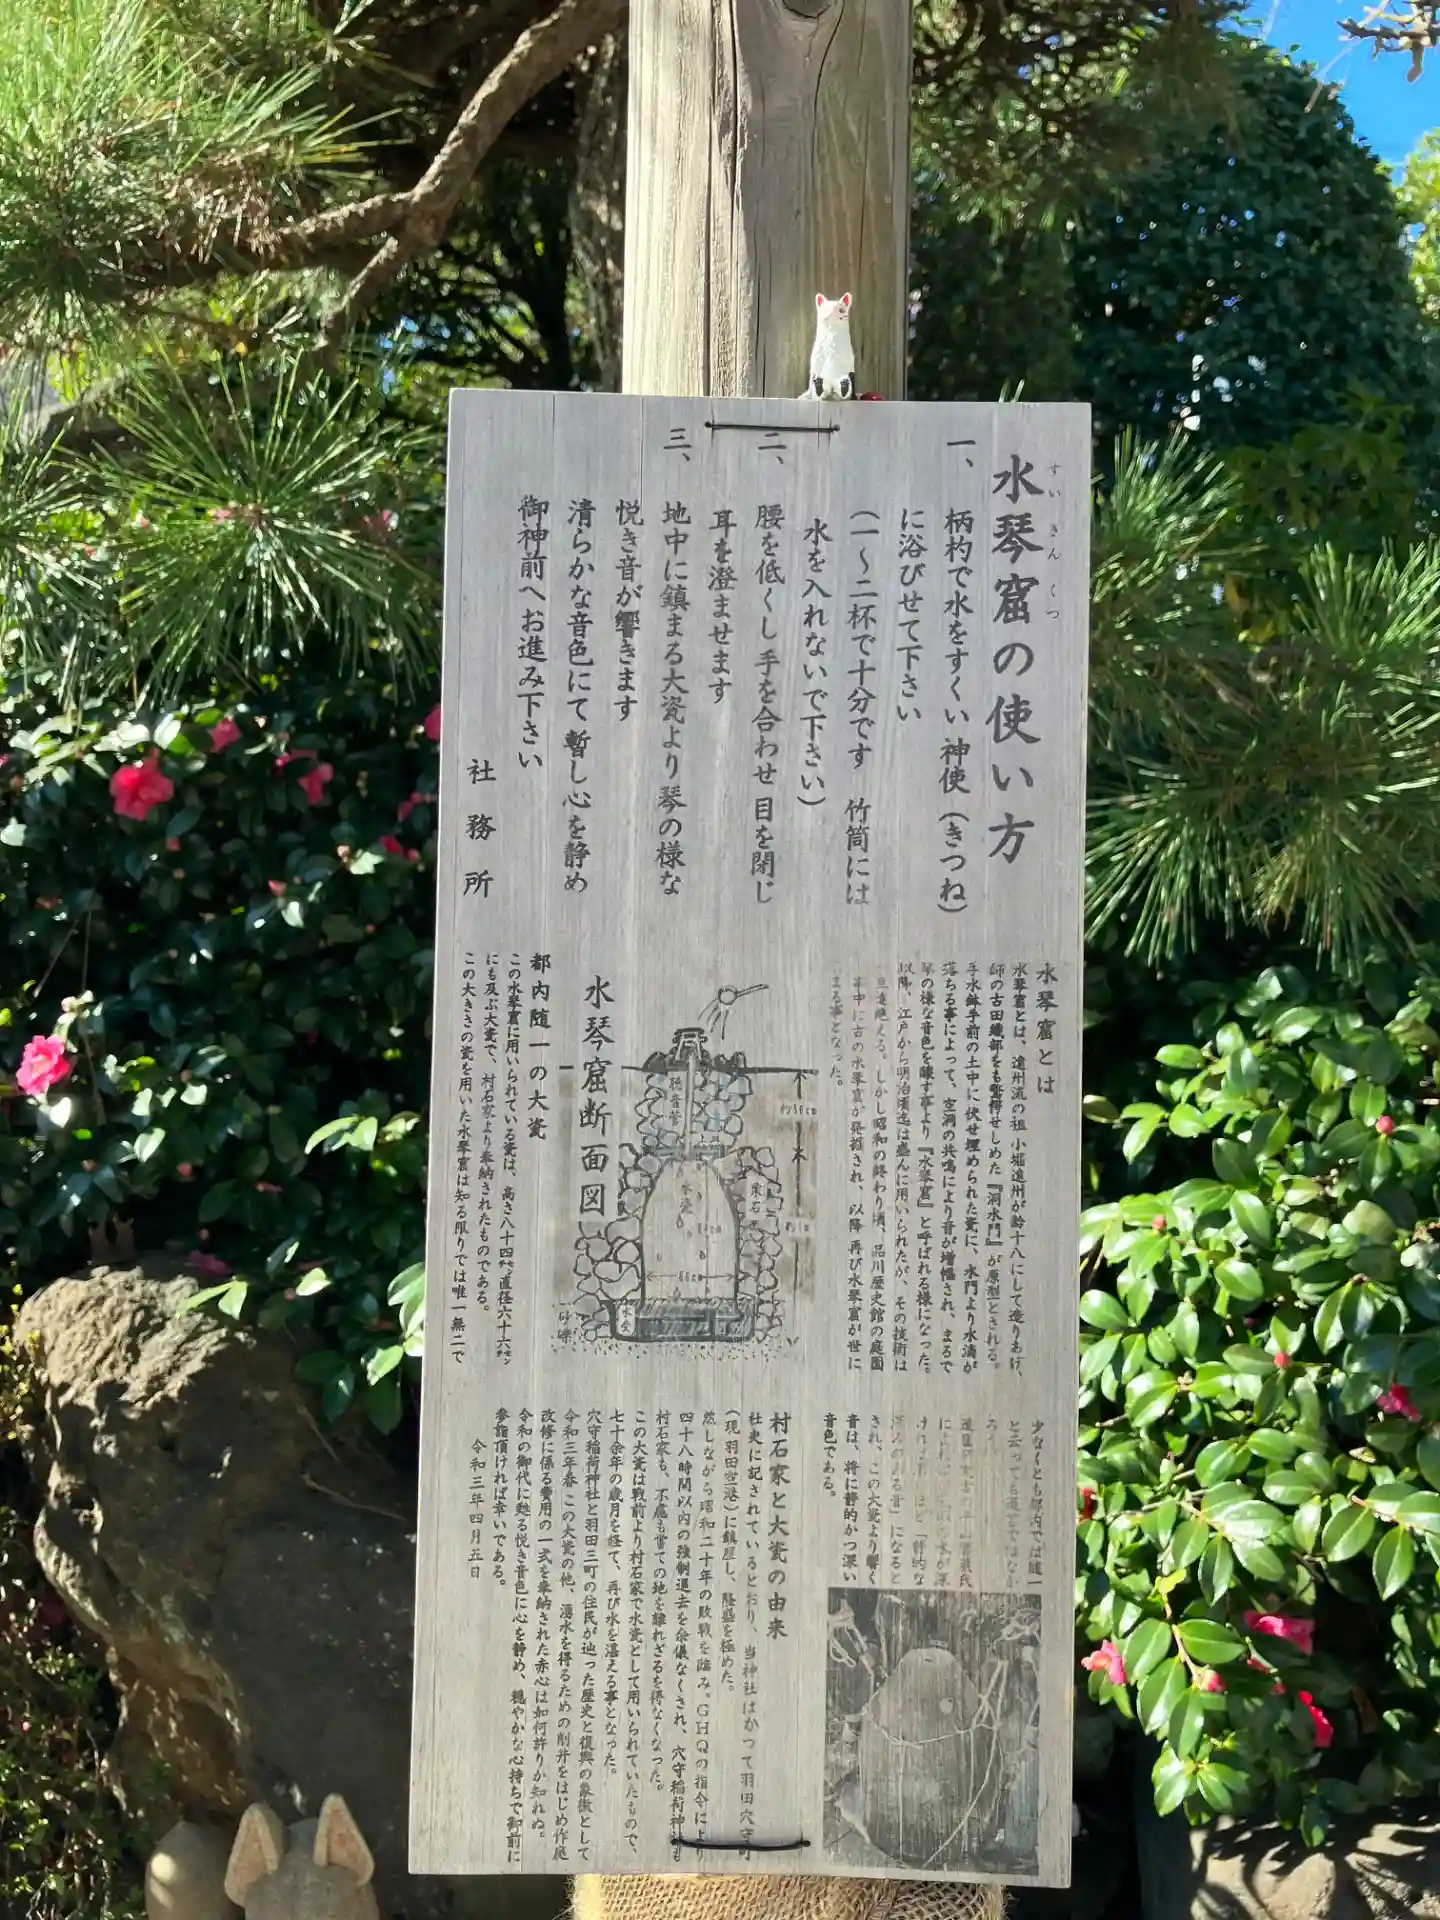 水琴窟の使い方
すいきんくつ
一、柄杓で水をすくい 神使(きつね)
に浴びせて下さい
(一〜二杯で十分です 竹筒には
水を入れないで下さい)
二、腰を低くし手を合わせ 目を閉じ
耳を澄ませます
三、地中に鎮まる大瓷より琴の様な
悦き音が響きます
清らかな音色にて暫し心を静め
御神前へお進み下さい
社務所
水琴窟とは
水琴窟とは、遠州流の祖 小堀遠州が齢十八にして造りあげ、
師の古田織部をも驚愕せしめた『洞水門』が原型とされる。
手水鉢手前の土中に伏せ埋められた瓷に、水門より水滴が
落ちる事によって、空洞の共鳴により音が増幅され、まるで
琴の様な音色を醸す事より『水琴窟』と呼ばれる様になった。
以降、江戸から明治頃迄は盛んに用いられたが、その技術は
一旦途絶える。しかし昭和の終わり頃、品川歴史館の庭園
中に古の水琴窟が発掘され、以降 再び水琴窟が世に
まる事となった。
水琴窟断面図
聴音管
約50cm
水瓷
栗石
約1m
84cm
66cm
水受
砂礫
都内随一の大瓷
この水琴窟に用いられている瓷は、高さ八十四㌢直径六十六㌢
にも及ぶ大瓷で、村石家より奉納されたものである。
この大きさの瓷を用いた水琴窟は知る限りでは唯一無二で
少なくとも都内では随一
と云っても過言ではなか
ろ
氏
水が深
「静的な
深みのある音」になると
され、この大瓷より響く
音は、将に静的かつ深い
音色である。
村石家と大瓷の由来
社史に記されているとおり、当神社はかつて羽田穴守町
(現 羽田空港)に鎮座し、隆盛を極めた。
然しながら昭和二十年の敗戦を臨み、GHQの指令により
四十八時間以内の強制退去を余儀なくされ、穴守稲荷神社も
村石家も、不慮も嘗ての地を離れざるを得なくなった。
この大瓷は戦前より村石家で水瓷として用いられていたもので、
七十余年の歳月を経て、再び水を湛える事となった。
穴守稲荷神社と羽田三町の住民が辿った歴史と復興の象徴として
令和三年春 この大瓷の他、湧水を得るための削井をはじめ作庭
改修に係る費用の一式を奉納された赤心は如何許りか知れぬ。
令和の御代に甦る悦き音色に心を静め、穏やかな心持ちで御前に
参詣頂ければ幸いである。
令和三年四月五日